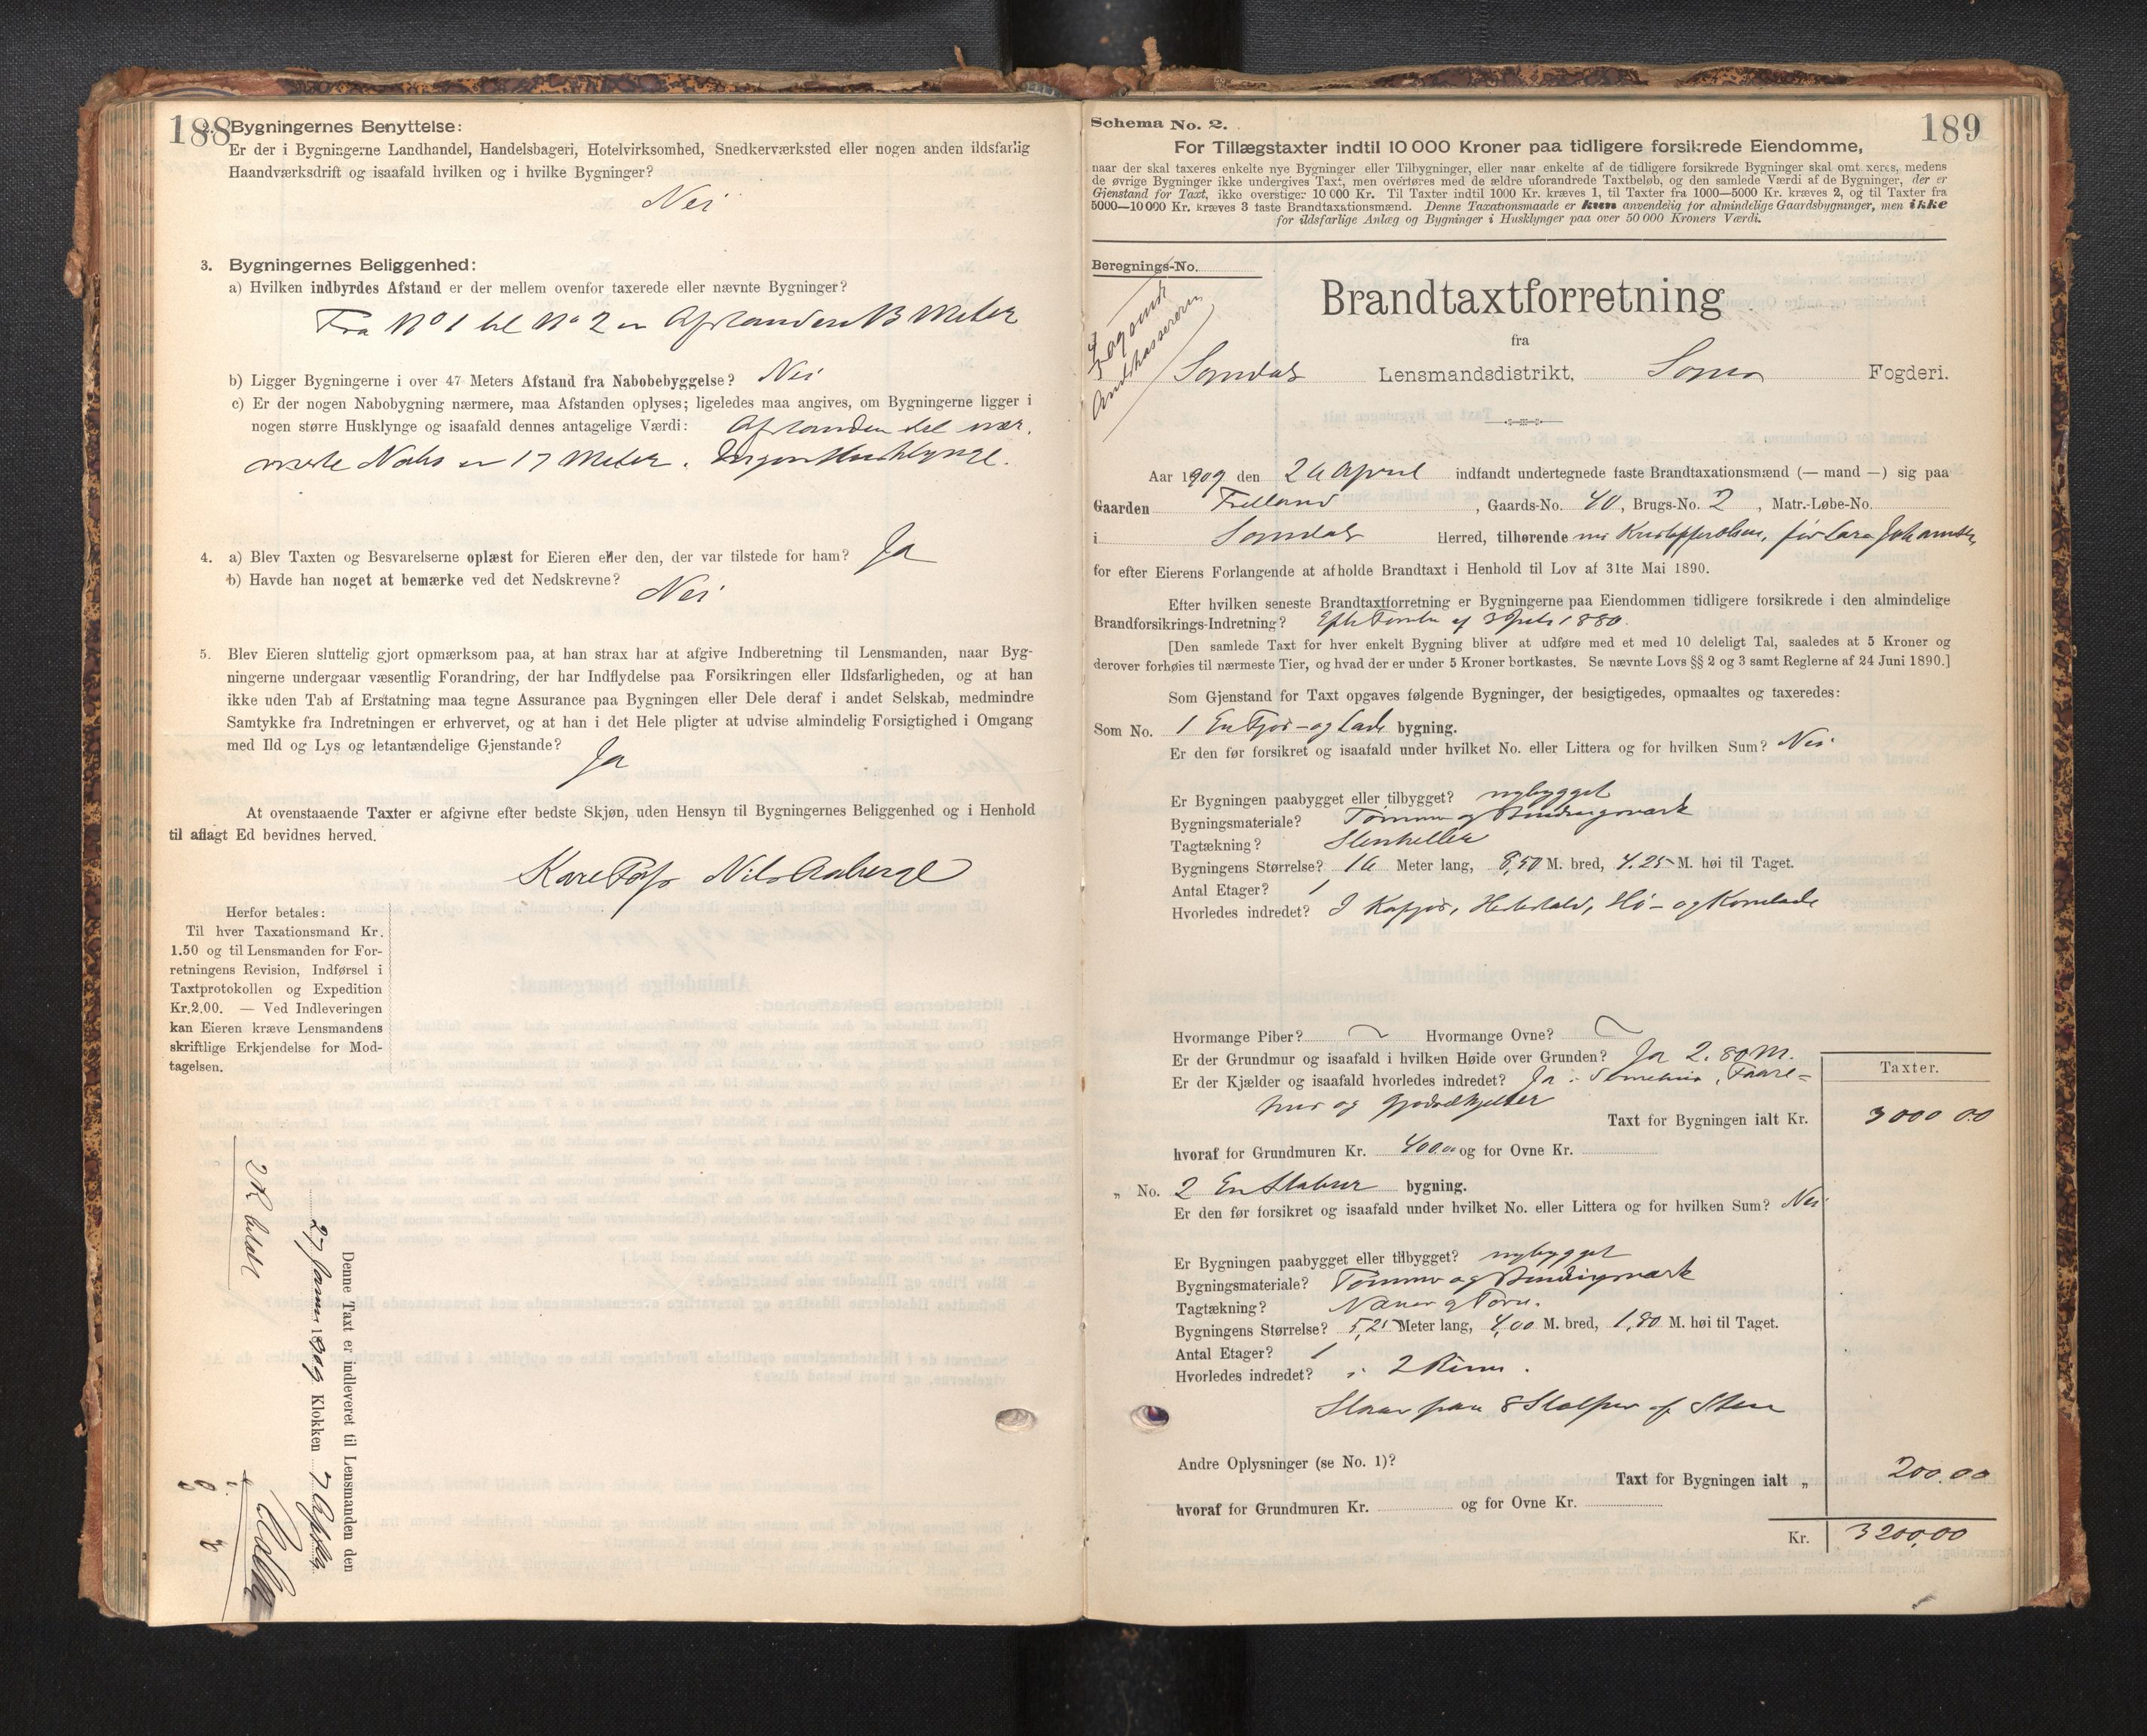 188
2. Bygningernes Benyttelse:
Er der i Bygningerne Landhandel, Handelsbageri, Hotelvirksomhed, Snedkerværksted eller nogen anden ildsfarlig
Haandværksdrift og isaafald hvilken og i hvilke Bygninger?
Nei
3. Bygningernes Beliggenhed:
a) Hvilken indbyrdes Afstand er der mellem ovenfor taxerede eller nævnte Bygninger?
Fra No 1 til No 2 er Afstanden 13 Meter
b) Ligger Bygningerne i over 47 Meters Afstand fra Nabobebyggelse? Nei
c) Er der nogen Nabobygning nærmere, maa Afstanden oplyses; ligeledes maa angives, om Bygningerne ligger i
nogen større Husklynge og isaafald dennes antagelige Værdi: Afstanden til nær-
meste Nabo er 17 Meter. Ingen Husklynge.
4. a) Blev Taxten og Besvarelserne oplæst for Eieren eller den, der var tilstede for ham? Ja
b) Havde han noget at bemærke ved det Nedskrevne? Nei
5. Blev Eieren sluttelig gjort opmærksom paa, at han strax har at afgive Indberetning til Lensmanden, naar Byg-
ningerne undergaar væsentlig Forandring, der har Indflydelse paa Forsikringen eller Ildsfarligheden, og at han
ikke uden Tab af Erstatning maa tegne Assurance paa Bygningen eller Dele deraf i andet Selskab, medmindre
Samtykke fra Indretningen er erhvervet, og at han i det Hele pligter at udvise almindelig Forsigtighed i Omgang
med Ild og Lys og letantændelige Gjenstande?
Ja
At ovenstaaende Taxter er afgivne efter bedste Skjøn, uden Hensyn til Bygningernes Beliggenhed og i Henhold
til aflagt Ed bevidnes herved.
Nils Aaberge
Herfor betales:
Til hver Taxationsmand Kr.
1.50 og til Lensmanden for For-
retningens Revision, Indførsel i
Taxtprotokollen og Expedition
Kr.2.00. — Ved Indleveringen
kan Eieren kræve Lensmandens
skriftlige Erkjendelse for Mod-
tagelsen.
Denne Taxt er indleveret til Lensmanden den
27 1909 Klokken 7
2 Kr betalt
189
Schema No. 2.
For Tillægstaxter indtil 10 000 Kroner paa tidligere forsikrede Eiendomme,
naar der skal taxeres enkelte nye Bygninger eller Tilbygninger, eller naar enkelte af de tidligere forsikrede Bygninger skal omt xeres, medens
de øvrige Bygninger ikke undergives Taxt, men overføres med de ældre uforandrede Taxtbeløb, og den samlede Værdi af de Bygninger, der er
Gjenstand for Taxt, ikke overstiger 10 000 Kr. Til Taxter indtil 1000 Kr. kræves 1, til Taxter fra 1000—5000 Kr. kræves 2, og til Taxter fra
5000—10 000 Kr. kræves 3 faste Brandtaxationsmænd. Denne Taxationsmaade er kun anvendelig for almindelige Gaardsbygninger, men ikke
for ildsfarlige Anlæg og Bygninger i Husklynger paa over 50 000 Kroners Værdi.
Beregnings-No.
Brandtaxtforretning
fra
Sogndal Lensmandsdistrikt, Sogns Fogderi.
Aar 1909 den 26 April indfandt undertegnede faste Brandtaxationsmænd (— mand —) sig paa
Gaarden , Gaards-No. 40, Brugs-No. 2, Matr.-Løbe-No.
i Sogndal Herred, tilhørende Lars Johannsen
for efter Eierens Forlangende at afholde Brandtaxt i Henhold til Lov af 31te Mai 1890.
Efter hvilken seneste Brandtaxtforretning er Bygningerne paa Eiendommen tidligere forsikrede i den almindelige
Brandforsikrings-Indretning? 1880.
[Den samlede Taxt for hver enkelt Bygning bliver at udføre med et med 10 deleligt Tal, saaledes at 5 Kroner og
derover forhøies til nærmeste Tier, og hvad der er under 5 Kroner bortkastes. Se nævnte Lovs §§ 2 og 3 samt Reglerne af 24 Juni 1890.]
Som Gjenstand for Taxt opgaves følgende Bygninger, der besigtigedes, opmaaltes og taxeredes:
Som No. 1 En Fjøs- og Lade bygning.
Er den før forsikret og isaafald under hvilket No. eller Littera og for hvilken Sum? Nei
Er Bygningen paabygget eller tilbygget? nybygget
Bygningsmateriale? Tømmer og Bindingsværk
Tagtækning? Stenheller
Bygningens Størrelse? 16 Meter lang, 8,50 M. bred, 4.25 M. høi til Taget.
Antal Etager? 1
Hvorledes indredet? I Kofjøs, Hestestald, Hø- og Kornlade
Hvormange Piber? Hvormange Ovne?
Er der Grundmur og isaafald i hvilken Høide over Grunden? Ja 2.80 M.
Er der Kjælder og isaafald hvorledes indredet? Ja i Faare-
hus og Gjødselkjelder
Taxter.
Taxt for Bygningen ialt Kr. 3000 00
hvoraf for Grundmuren Kr. 400.00 og for Ovne Kr.
„ No. 2 En Stabur bygning.
Er den før forsikret og isaafald under hvilket No. eller Littera og for hvilken Sum? Nei
Er Bygningen paabygget eller tilbygget? nybygget
Bygningsmateriale? Tømmer og Bindingsværk
Tagtækning? Næver og Torv.
Bygningens Størrelse? 5,25 Meter lang, 4,00 M. bred, 1,80 M. høi til Taget.
Antal Etager? 1
Hvorledes indredet? i 2 Rum.
Staar paa 8 Stolper af Sten
Andre Oplysninger (se No. 1)?
Taxt for Bygningen ialt „ 200.00
hvoraf for Grundmuren Kr. og for Ovne Kr.
Kr. 3200,00